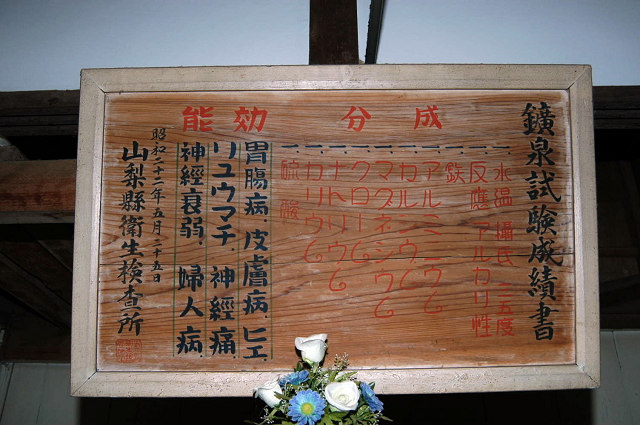 鑛泉試験成績書
成分
水温 攝氏 二五度
反應 アルカリ性
一、鉄
一、アルミニウム
一、カルシウム
一、マグネシウム
一、クロール
一、ナトリウム
一、カリウム
一、硫酸
効能
胃腸病、皮膚病、ヒエ
リユウマチ、神經痛、
神經衰弱、婦人病、
昭和二十二年五月二十五日
山梨縣衛生検査所